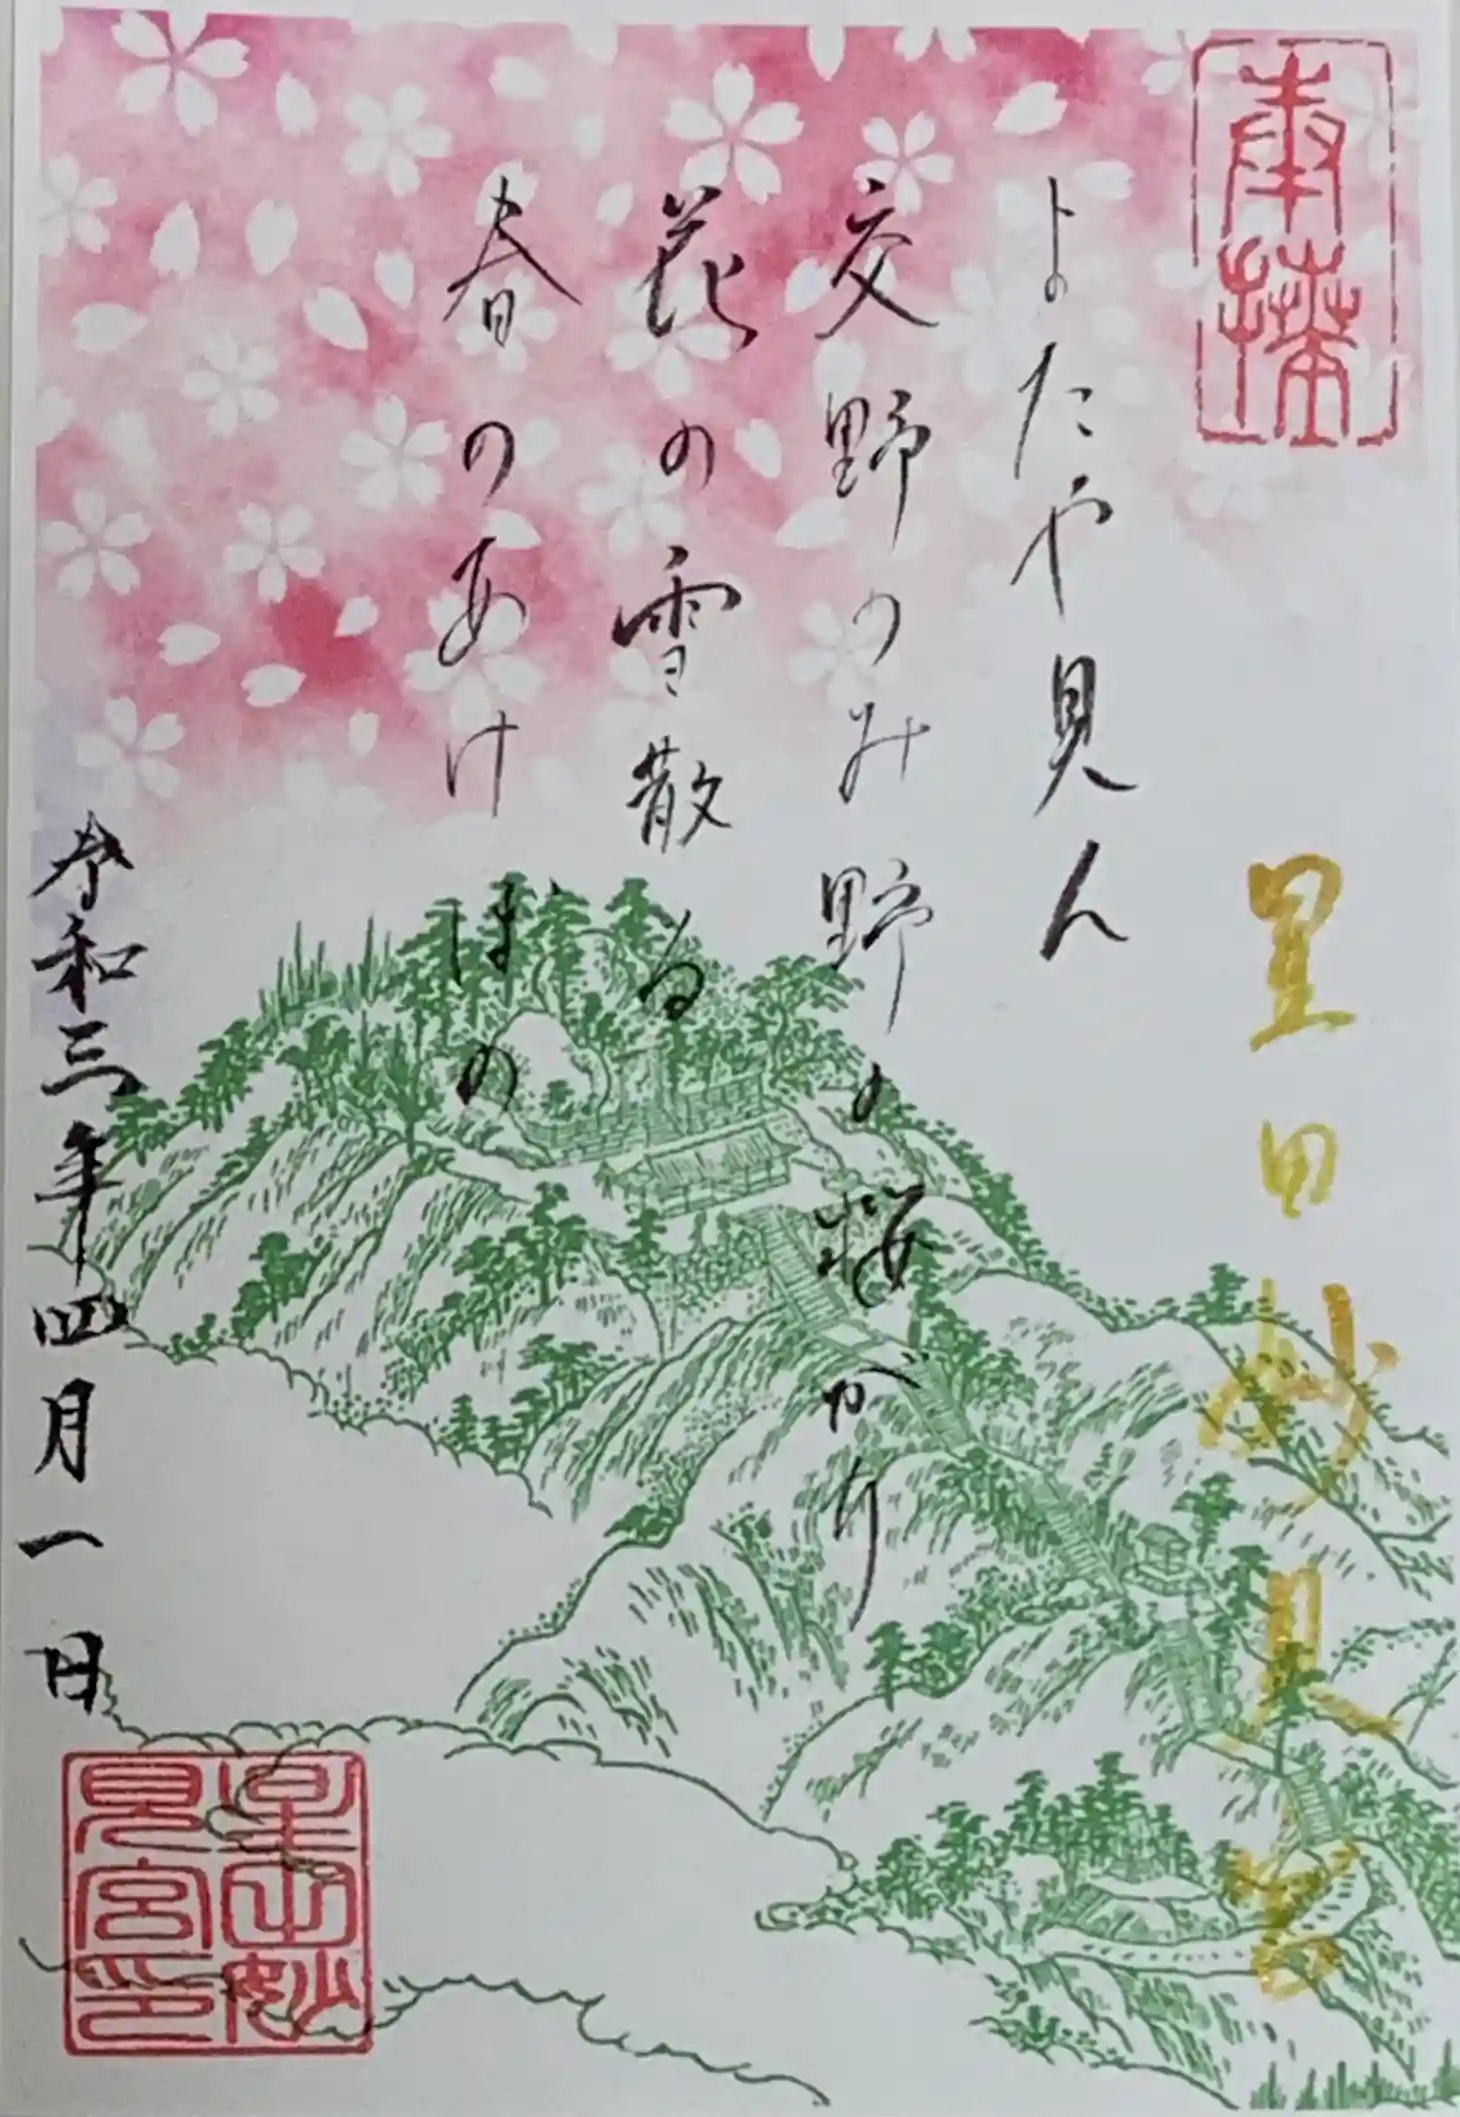 奉拝
星田妙見宮
またや見ん
交野のみ野の桜がり
花の雪散る
春のあけぼの
令和三年四月一日
星田妙
見宮印